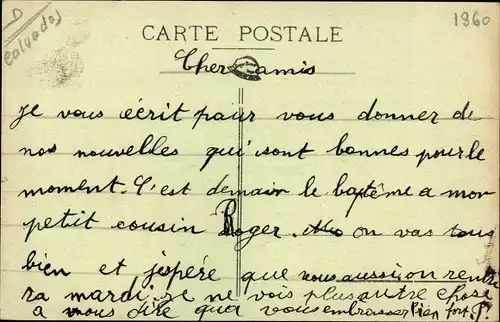 D
Calvados
1360
CARTE POSTALE
Cher amis
Je vous écrit pour vous donner de
nos nouvelles qui sont bonnes pour le
moment. C'est demain le baptême a mon
petit cousin Roger. on vas tous
bien et j'espére que vous aussi on rentre
ra mardi. je ne vois plus autre chose
a vous dite que vous embrasser bien fort. P.